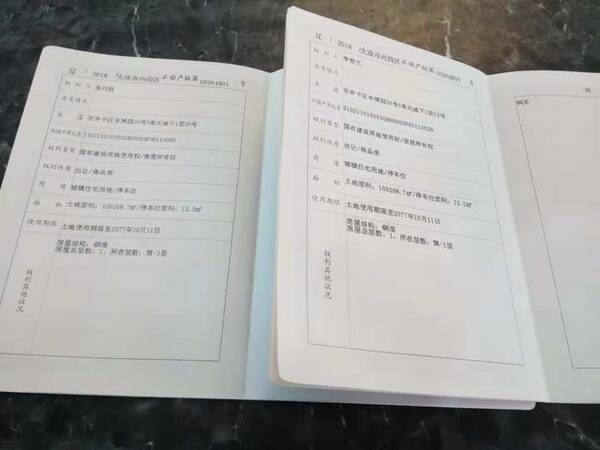 辽（2018）大连市内四区不动产权第00364804号
权利人
共有情况
坐落 甘井子区辛博园30号5单元地下1层39号
不动产单元号
权利类型 国有建设用地使用权/房屋所有权
权利性质 出让/商品房
用途 城镇住宅用地/停车位
面积 土地面积：109268.7㎡/停车位面积：12.5㎡
使用期限 土地使用期限至2077年10月11日
权利其他状况
房屋结构：钢混
房屋总层数：1，所在层数：第-1层
辽（2018）大连市内四区不动产权第
号
权利人
共有情况
坐落 甘井子区辛博园30号5单元地下1层
不动产单元号
权利类型 国有建设用地使用权/房屋所有权
权利性质 出让/商品房
用途 城镇住宅用地/停车位
面积 土地面积：109268.7㎡/停车位面积：12.5㎡
使用期限 土地使用期限至2077年10月11日
权利其他状况
房屋结构：钢混
房屋总层数：1，所在层数：第-1层